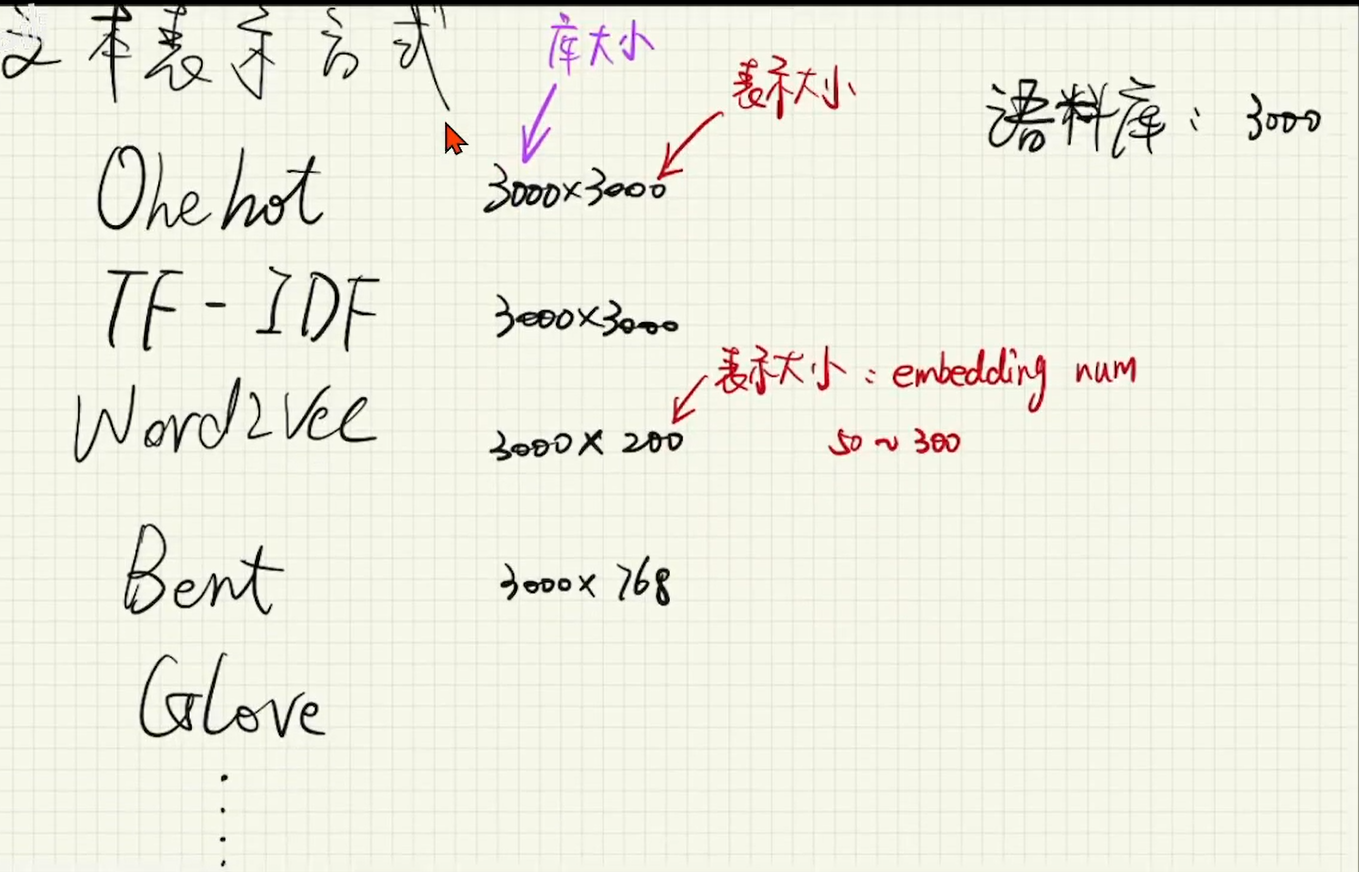 文本表示方式
库大小
表示大小
语料库: 3000
Onehot 3000×3000
TF-IDF 3000×3000
表示大小: embedding num
Word2Vec 3000×200 50~300
Bert 3000×768
Glove